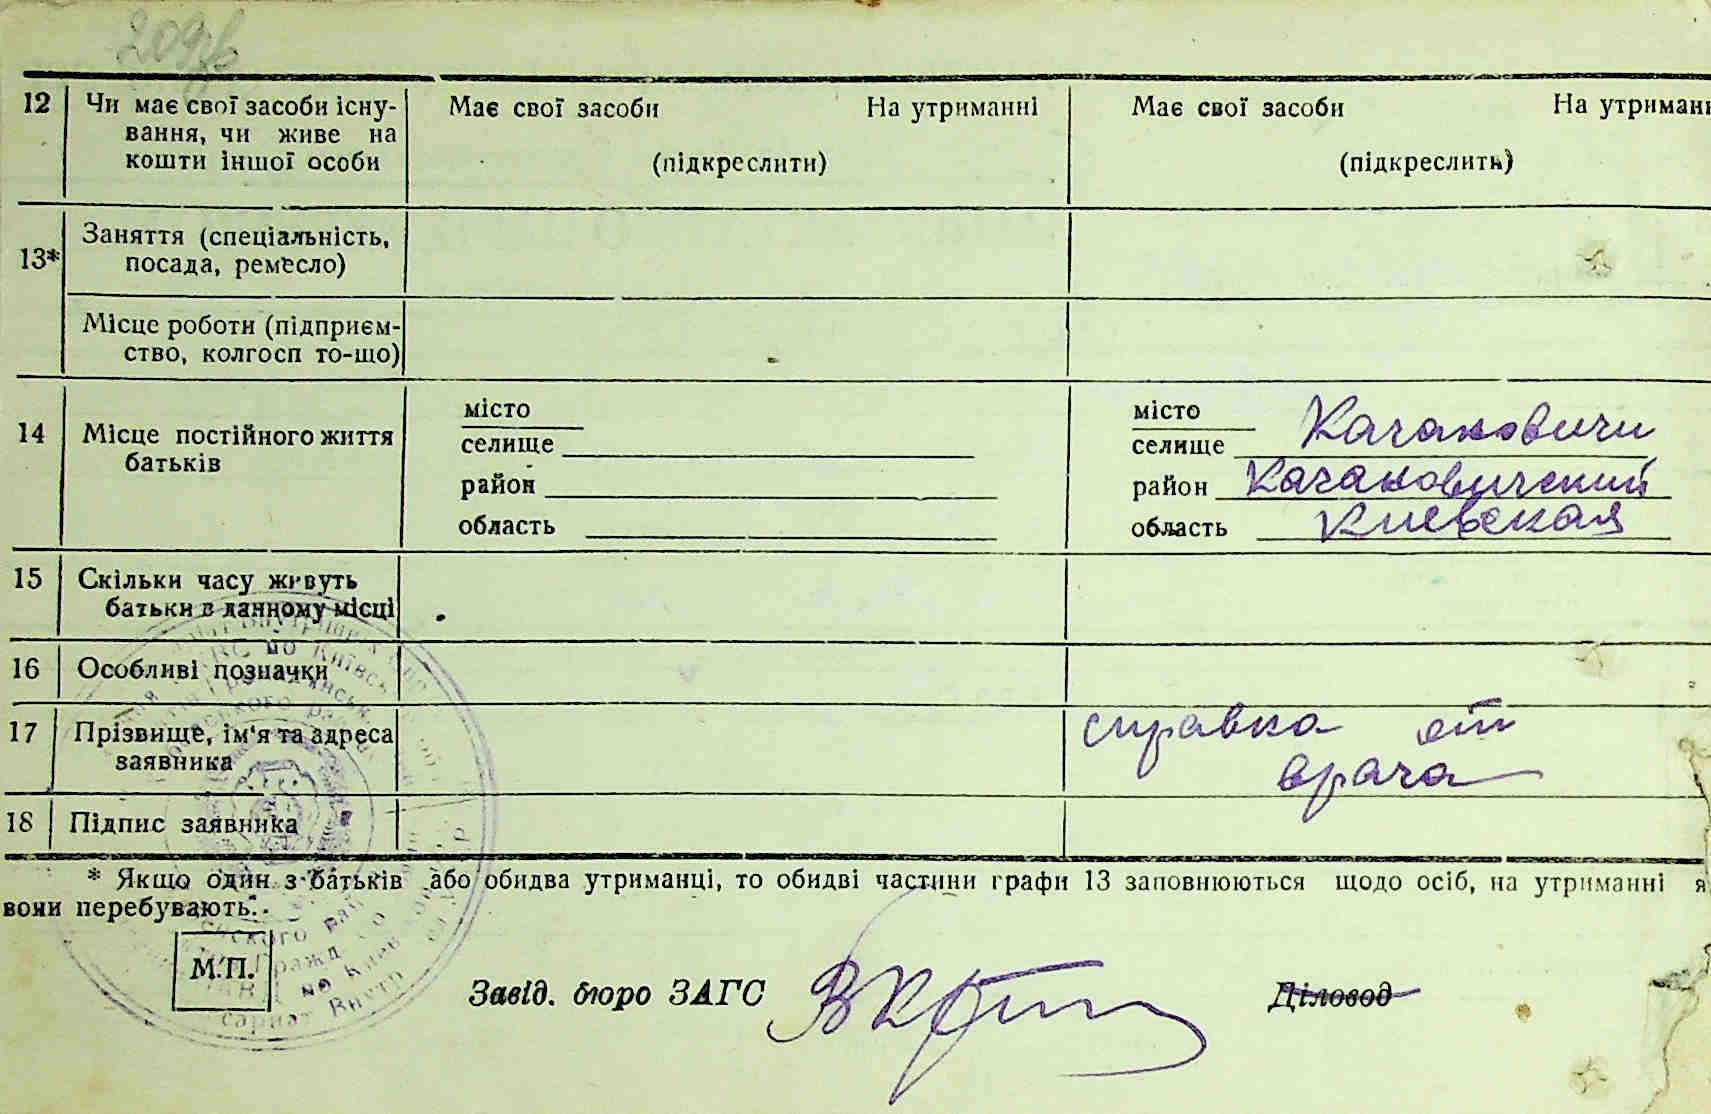 209
12 Чи має свої засоби існу-
вання, чи живе на
кошти іншої особи
Має свої засоби На утриманні
(підкреслити)
Має свої засоби На утриманн
(підкреслить)
13* Заняття (спеціальність,
посада, ремесло)
Місце роботи (підприєм-
ство, колгосп то-що)
14 Місце постійного життя
батьків
місто
селище
район
область
місто
селище Качановичи
район Качановический
область Киевская
15 Скільки часу живуть
батьки в данному місці
16 Особливі позначки
17 Прізвище, ім'я та адреса
заявника
справка от
врача
18 Підпис заявника
* Якщо один з батьків або обидва утриманці, то обидві частини графи 13 заповнюються щодо осіб, на утриманні я
вони перебувають.
М.П.
Завід. бюро ЗАГС
Діловод